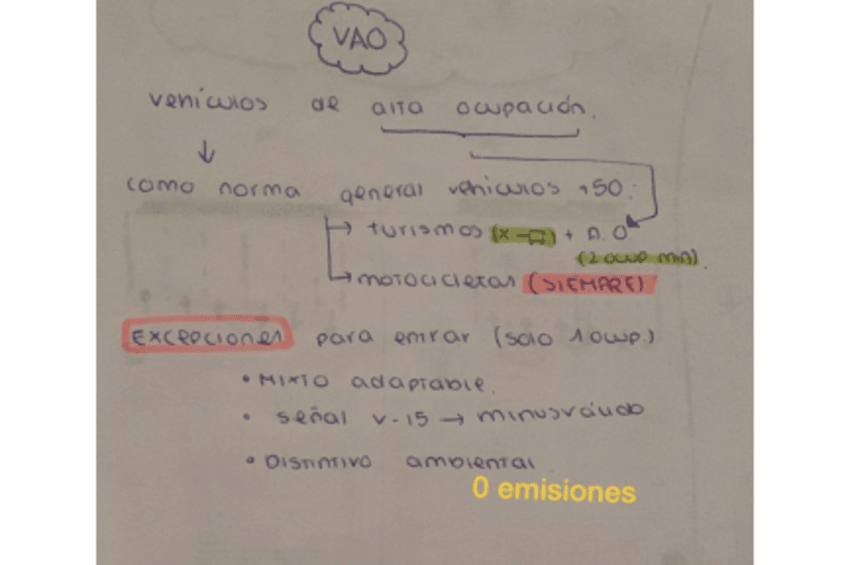 VAO
vehículos de alta ocupación.
como norma general vehículos +50:
turismos (x ) + A.O
(2 ocup min).
motocicletas (SIEMPRE)
Excepciones para entrar (solo 1 ocup.)
• MIXTO adaptable.
• señal v-15 → minusválido
• Distintivo ambiental
0 emisiones